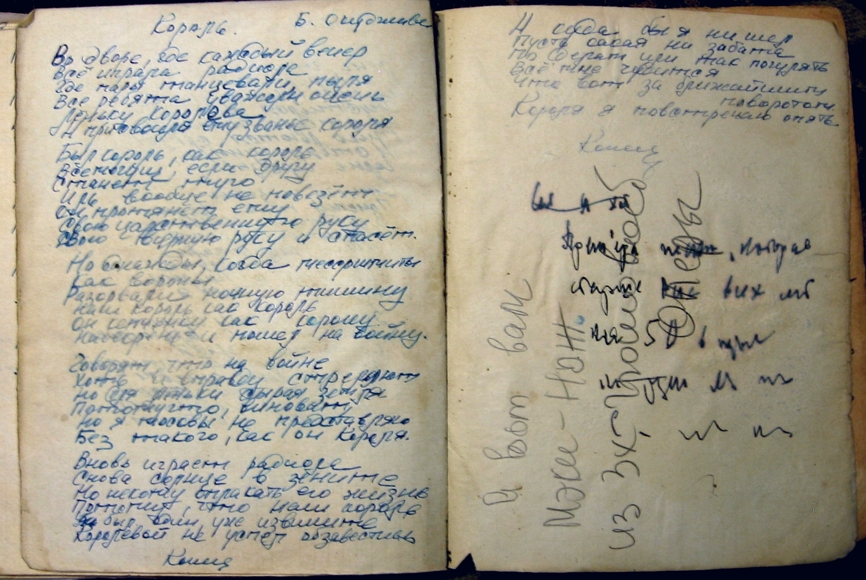 Король. Б. Окуджава
Во дворе, где каждый вечер
Всё играла радиола
Где пары танцевали пыля
Все ребята уважали очень
Леньку Королева
И присвоили ему званье короля
Был король, как король
Всемогущ, если другу
Станет туго
Иль вообще не повезёт
Он протянет ему
Свою царственную руку
Свою верную руку и спасёт.
Но однажды, когда мессершмиты
Как вороны
Разорвали ночную тишину
Наш король как король
Он кепчонку как корону
Набекрень и пошел на войну.
Говорят, что на войне
Хоть и вправду стреляют
Но
сырая земля
Но я Москвы не представляю
Без такого, как он Короля.
Вновь играет радиола
Снова солнце в зените
Но некому оплакать его жизнь
Потому, что наш король
был
уже извините
Королевой не успел обзавестись
Конец
И куда бы я ни шел
Пусть какая ни забота
По делам или так погулять
Всё мне чудится
Что вот за ближайшим
поворотом
Короля я повстречаю опять.
Конец
И вот вам
Мэки-Нож
Из 3х-грошовой
Оперы
, которая
старше
всех
на 5